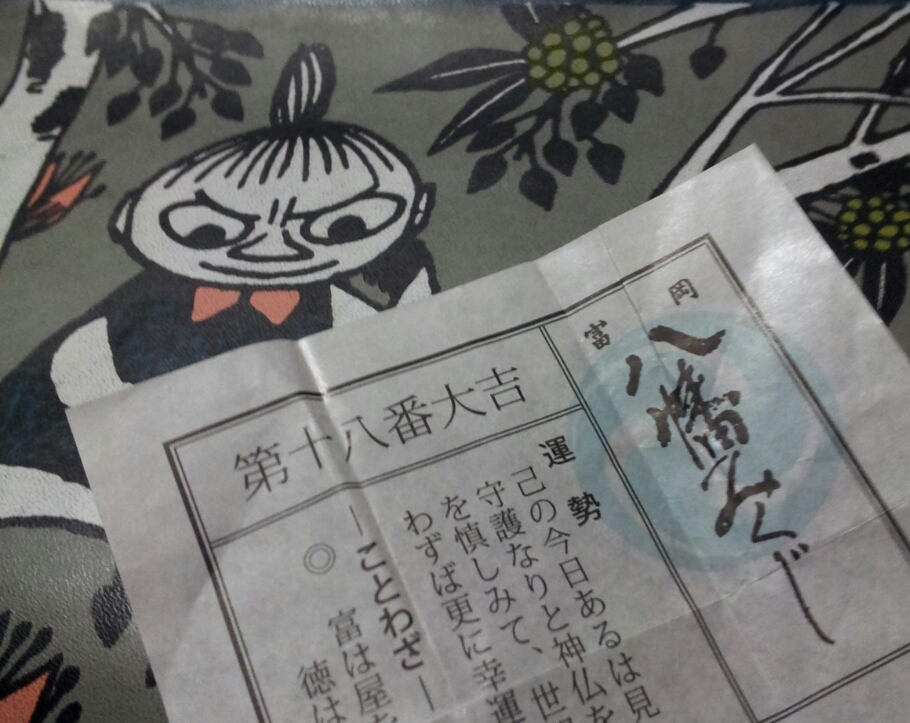 富岡
八幡みくじ
第十八番大吉
運勢
己の今日あるは見
守護なりと神仏を
を慎しみて、世
わずば更に幸運
―ことわざ―
◎
富は屋を
徳は